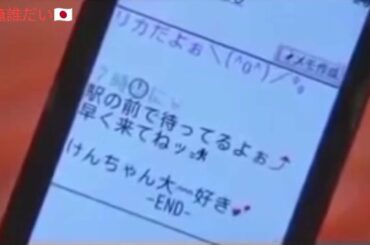 誰だい🇯🇵
リカだよぉ＼(^o^)／
メモ作成
7時🕛に
駅の前で待ってるよぉ⤴
早く来てねッ
けんちゃん大一好き💕
-END-